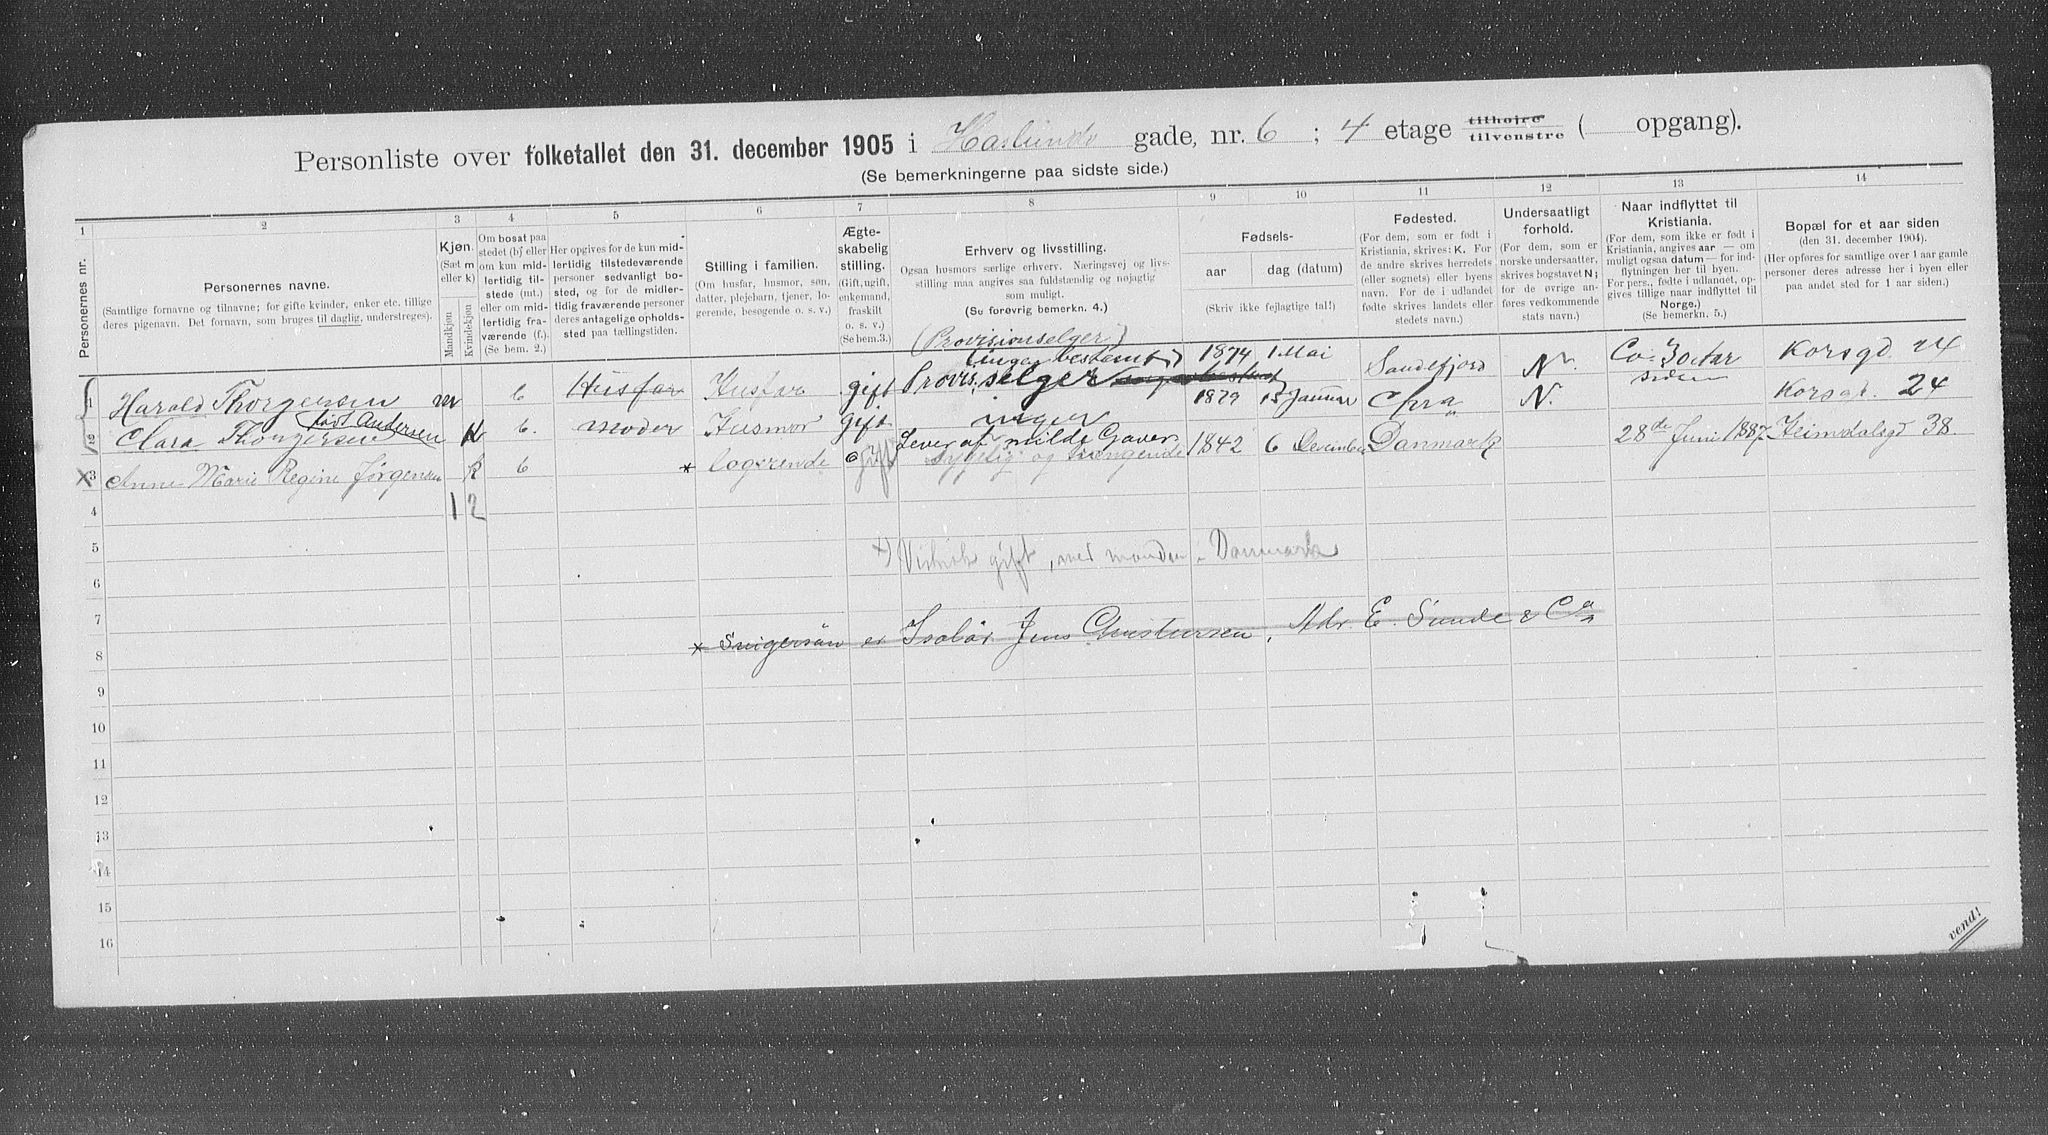 Personliste over folketallet den 31. december 1905 i Haslunds gade, nr. 6 ; 4 etage tilhøjre tilvenstre ( opgang).
(Se bemerkningerne paa sidste side.)
1 2 3 4 5 6 7 8 9 10 11 12 13 14
Personernes nr.
Personernes navne.
(Samtlige fornavne og tilnavne; for gifte kvinder, enker etc. tillige
deres pigenavn. Det fornavn, som bruges til daglig, understreges).
Kjøn.
(Sæt m
eller k)
Mandkjøn
Kvindekjøn
Om bosat paa
stedet (b) eller
om kun mid-
lertidig til-
stede (mt.)
eller om mid-
lertidig fra-
værende (f.).
(Se bem. 2.)
Her opgives for de kun mid-
lertidig tilstedeværende
personer sedvanligt bo-
sted, og for de midler-
tidig fraværende personer
deres antagelige opholds-
sted paa tællingstiden.
Stilling i familien.
(Om husfar, husmor, søn,
datter, plejebarn, tjener, lo-
gerende, besøgende o. s. v.)
Ægte-
skabelig
stilling.
(Gift, ugift,
enkemand,
fraskilt
o. s. v.)
(Se bem.3.)
Erhverv og livsstilling.
Ogsaa husmors særlige erhverv. Næringsvej og livs-
stilling maa angives saa fuldstændig og nøjagtig
som muligt.
(Se forøvrig bemerkn. 4.)
Fødsels-
aar
dag (datum)
(Skriv ikke fejlagtige tal!)
Fødested.
(For dem, som er født i
Kristiania, skrives: K. For
de andre skrives herredets
(eller sognets) eller byens
navn. For de i udlandet
fødte skrives landets eller
stedets navn.)
Undersaatligt
forhold.
(For dem, som er
norske undersaatter,
skrives bogstavet N;
for de øvrige an-
føres vedkommende
stats navn.)
Naar indflyttet til
Kristiania.
(For dem, som ikke er født i
Kristiania, angives aar — om
muligt ogsaa datum — for ind-
flytningen her til byen.
For pers., fødte i udlandet, op-
gives tillige naar indflyttet til
Norge.)
(Se bemerkn. 5.)
Bopæl for et aar siden
(den 31. december 1904).
(Her opføres for samtlige over 1 aar gamle
personer deres adresse her i byen eller
paa andet sted for 1 aar siden.)
(Provisionselger)
1 Harald Thorgersen m b Husfar Husfar gift Provis. selger 1874 1 Mai Sandefjord N. Korsgd 24
født Andersen
2 Clara Thorgersen k b. moder Husmor gift inger 1879 15 Januar Chra N. Korsgd. 24
Lever af milde Gaver
X 3 Anne Marie Regine Jørgensen k b * logerende gift sygelig og trengende 1842 6 December Danmark 28de Juni 1887 Heimdalsgd 38.
4 1 2
5
x) Vistnok gift, med manden i Danmark
6
7
* Svigersøn er Isolør Jens Christensen, Adr. E. Sunde & Co
8
9
10
11
12
13
14
15
16
vend!